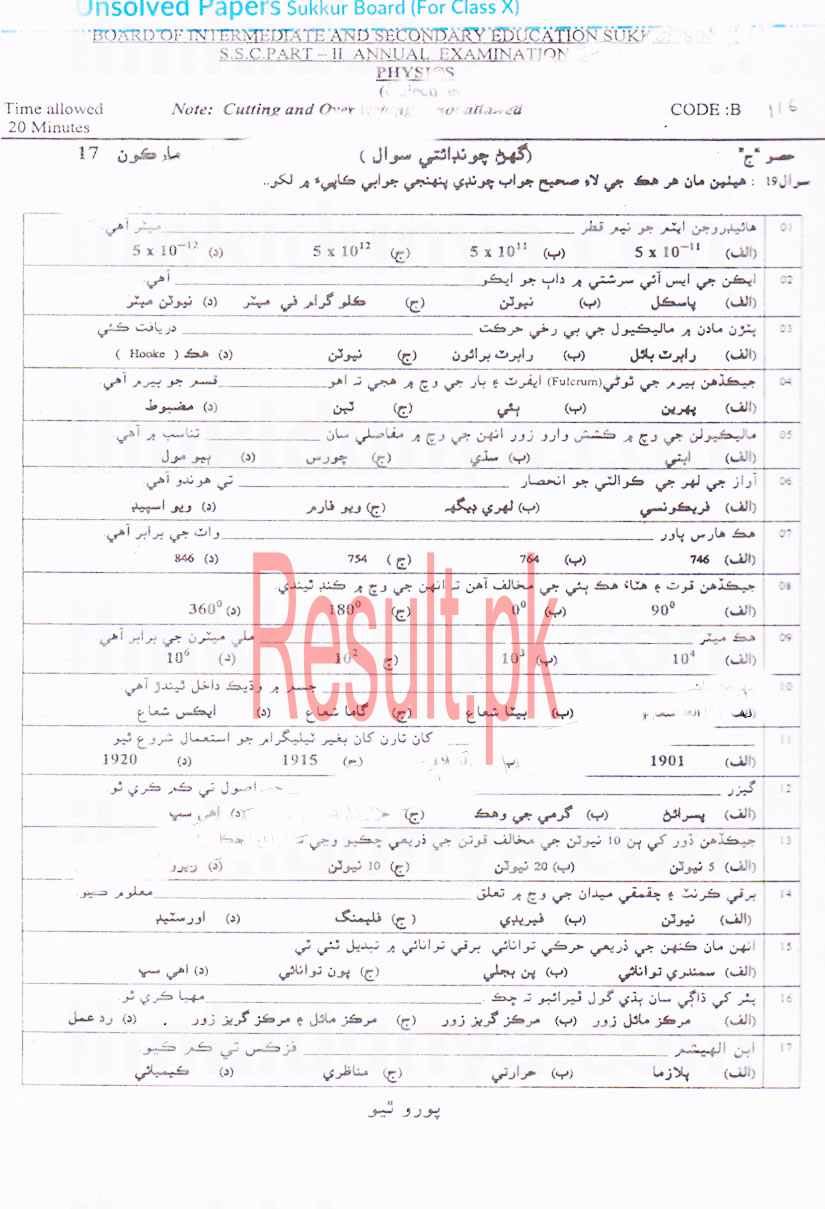 Unsolved Papers Sukkur Board (For Class X)
BOARD OF INTERMEDIATE AND SECONDARY EDUCATION SUKK
S.S.C.PART – II ANNUAL EXAMINATION
PHYSICS
Time allowed Note: Cutting and Over allowed CODE :B
20 Minutes
حصو "ج" (گهڻ چونڊائتي سوال) مارڪون 17
سوال19 : هيٺين مان هر هڪ جي لاءِ صحيح جواب چونڊي پنهنجي جوابي ڪاپيءَ ۾ لکو..
01 هائيڊروجن ايٽم جو نيم قطر ______ ميٽر آهي.
(الف) 5 x 10⁻¹¹ (ب) 5 x 10¹¹ (ج) 5 x 10¹² (د) 5 x 10⁻¹²
02 ايڪن جي ايس آئي سرشتي ۾ داٻ جو ايڪو ______ آهي
(الف) پاسڪل (ب) نيوٽن (ج) ڪلو گرام في ميٽر (د) نيوٽن ميٽر
03 پتڙن مادن ۾ ماليڪيول جي بي رخي حرڪت ______ دريافت ڪئي
(الف) رابرٽ بائل (ب) رابرٽ برائون (ج) نيوٽن (د) هڪ ( Hooke )
04 جيڪڏهن بيرم جي ٿوڻي(Fulcrum) ايفرٽ ۽ بار جي وچ ۾ هجي ته اهو ______ قسم جو بيرم آهي
(الف) پهرين (ب) ٻئي (ج) ٽين (د) مضبوط
05 ماليڪيولن جي وچ ۾ ڪشش وارو زور انهن جي وچ ۾ مفاصلي سان ______ تناسب ۾ آهي
(الف) ابتي (ب) سڌي (ج) چورس (د) ٻيو مول
06 آواز جي لهر جي ڪوالٽي جو انحصار ______ تي هوندو آهي
(الف) فريڪونسي (ب) لهري ڊيگهه (ج) ويو فارم (د) ويو اسپيڊ
07 هڪ هارس پاور ______ واٽ جي برابر آهي.
(الف) 746 (ب) 764 (ج) 754 (د) 846
08 جيڪڏهن قوت ۽ هٽاءُ هڪ ٻئي جي مخالف آهن ته انهن جي وچ ۾ ڪنڊ ٿيندي.
(الف) 90⁰ (ب) 0⁰ (ج) 180⁰ (د) 360⁰
09 هڪ ميٽر ______ ملي ميٽرن جي برابر آهي
(الف) 10⁴ (ب) 10³ (ج) 10² (د) 10⁶
10 جسم ۾ وڌيڪ داخل ٿيندڙ آهي
(الف) (ب) بيٽا شعاع (ج) گاما شعاع (د) ايڪس شعاع
11 ______ کان تارن کان بغير ٽيليگرام جو استعمال شروع ٿيو
(الف) 1901 (ب) (ج) 1915 (د) 1920
12 گيزر ______ اصول تي ڪم ڪري ٿو
(الف) پسرائڻ (ب) گرمي جي وهڪ (ج) (د) اهي سڀ
13 جيڪڏهن ڏور کي ٻن 10 نيوٽن جي مخالف قوتن جي ذريعي ڇڪيو وڃي
(الف) 5 نيوٽن (ب) 20 نيوٽن (ج) 10 نيوٽن (د) زيرو
14 برقي ڪرنٽ ۽ چقمقي ميدان جي وچ ۾ تعلق ______ معلوم ڪيو.
(الف) نيوٽن (ب) فيريڊي (ج) فليمنگ (د) اورسٽيڊ
15 انهن مان ڪنهن جي ذريعي حرڪي توانائي برقي توانائي ۾ تبديل ٿئي ٿي
(الف) سمنڊري توانائي (ب) پن بجلي (ج) پون توانائي (د) اهي سڀ
16 پٿر کي ڌاڳي سان ٻڌي گول ڦيرائبو ته ڇڪ ______ مهيا ڪري ٿو.
(الف) مرڪز مائل زور (ب) مرڪز گريز زور (ج) مرڪز مائل ۽ مرڪز گريز زور (د) رد عمل
17 ابن الهيثم ______ فزڪس تي ڪم ڪيو.
(الف) پلازما (ب) حرارتي (ج) مناظري (د) ڪيميائي
پورو ٿيو
Result.pk